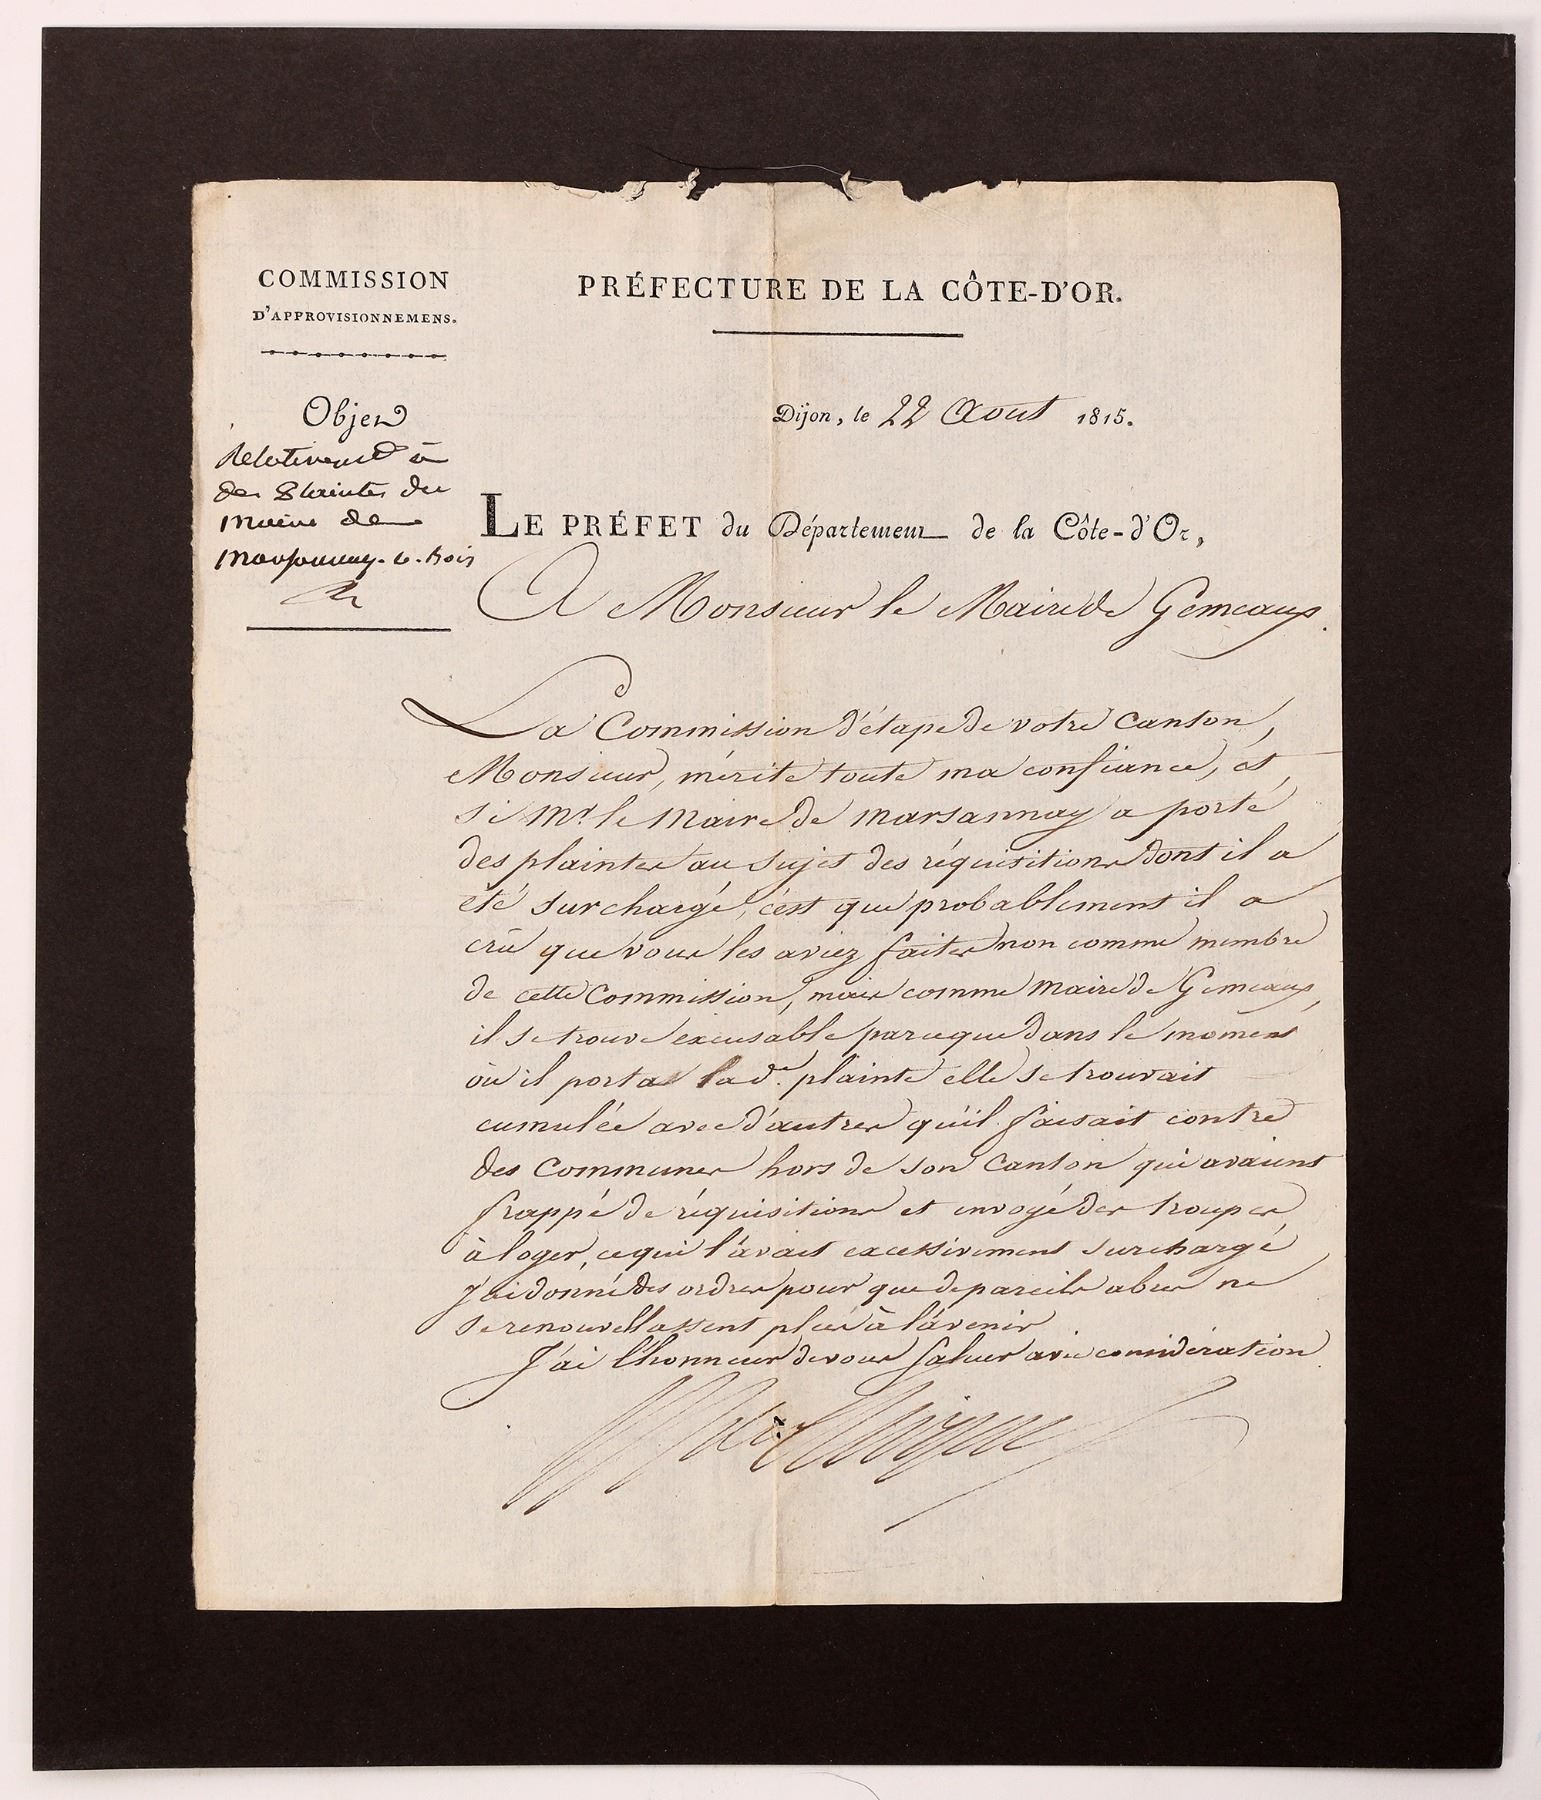 COMMISSION
D'APPROVISIONNEMENS.
PRÉFECTURE DE LA CÔTE-D'OR.
Dijon, le 22 Aout 1815.
Objet
Relativement à
des Plaintes du
Maire de
Marsannay-le-Bois
LE PRÉFET du Département de la Côte-d'Or,
A Monsieur le Maire de Gemeaux.
La Commission d'étape de votre Canton,
Monsieur, mérite toute ma confiance, et
si Mr. le Maire de Marsannay a porté
des plaintes au sujet des réquisitions dont il a
été surchargé, c'est que probablement il a
crû que vous les aviez faites non comme membre
de cette Commission, mais comme Maire de Gemeaux,
il se trouve excusable parceque dans le moment
où il porta la de. plainte elle se trouvait
cumulée avec d'autres qu'il faisait contre
des Communes hors de son Canton qui avaient
frappé de réquisitions et envoyé des troupes
à loger, ce qui l'avait excessivement surchargé
J'ai donné des ordres pour que de pareils abus ne
se renouvellassent plus à l'avenir
J'ai l'honneur de vous saluer avec considération